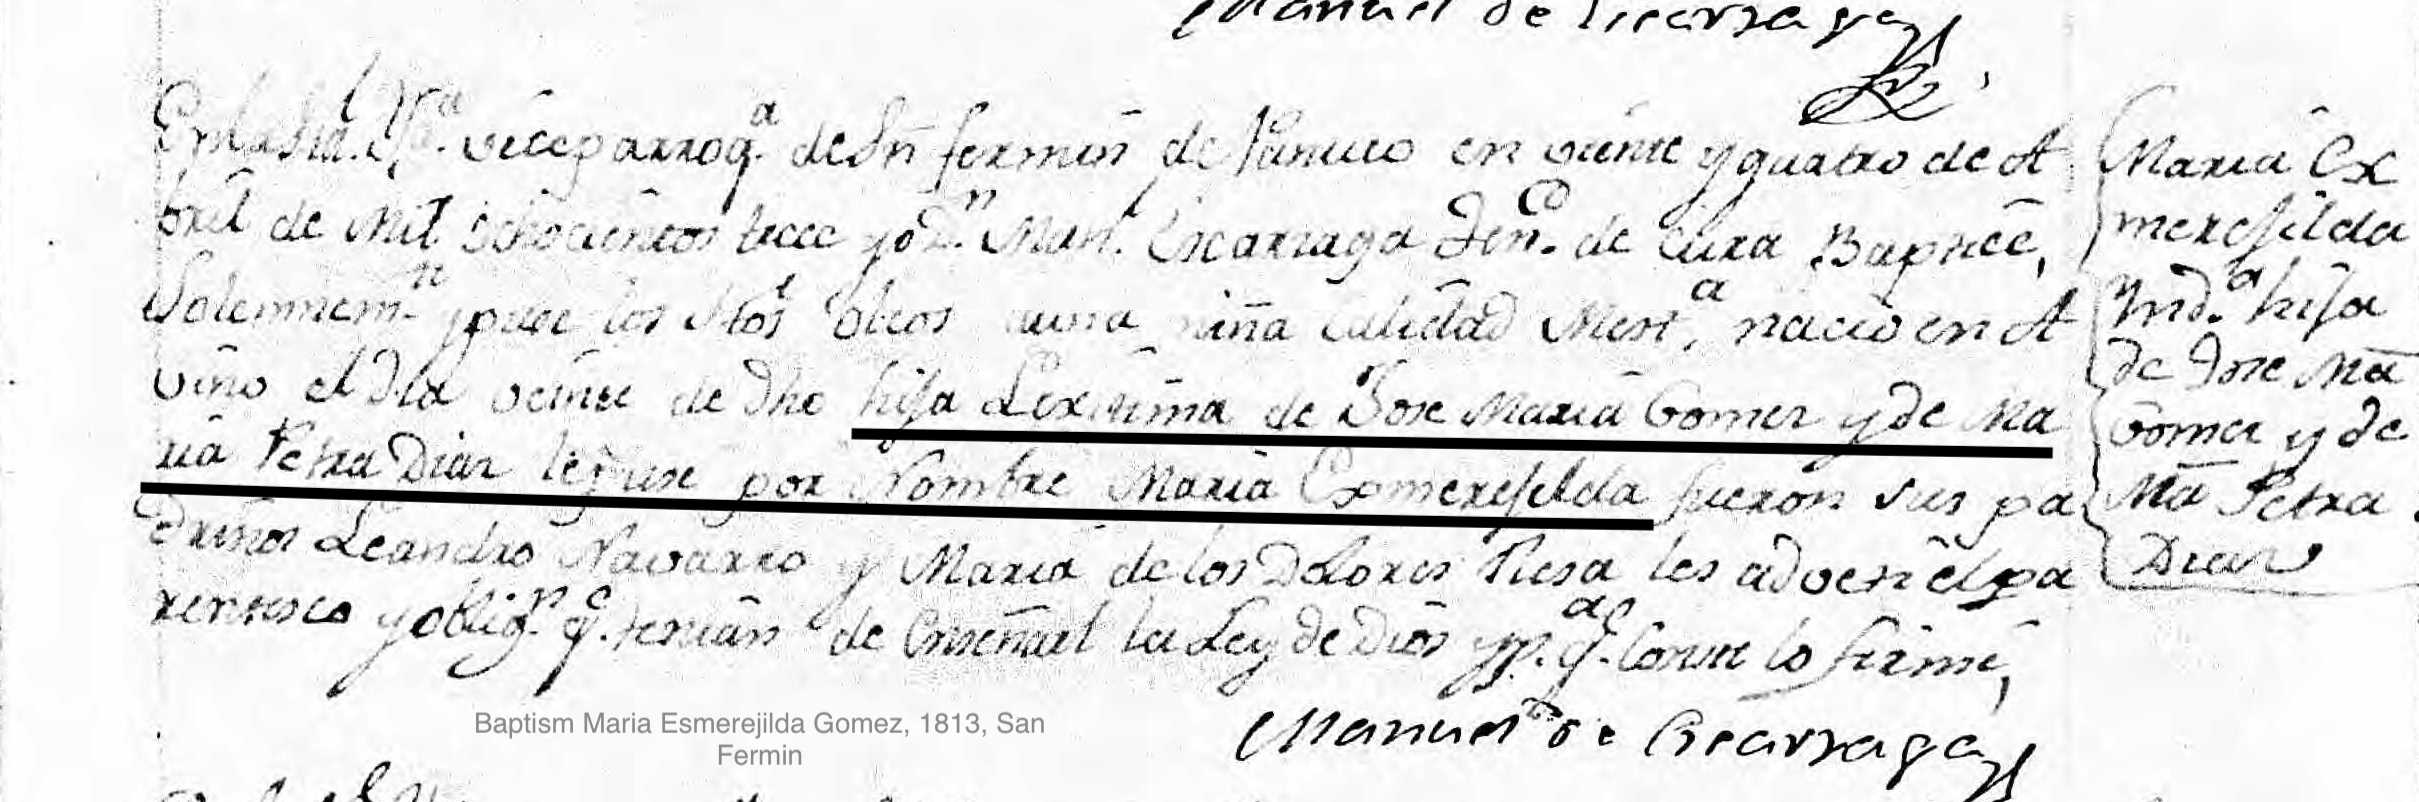 Manuel de Licarraga
En la Sta. Ygª. viceparroqª. de Sn fermin de Panuco en veinte y quatro de A
bril de Mil Ochocientos trece yo Dn. Manl. Licarraga Tenᵉ. de Cura Baptice,
Solemnemⁿ y puse los Stos oleos a una niña calidad Mestª, nacio en A
vino el dia veinte de dho hija Lexitima de Jose Maria Gomez y de Ma
ria Petra Diaz le puse por Nombre Maria Exmerejilda fueron sus pa
drinos Leandro Navarro y Maria de los Dolores Mesa les adverti el pa
rentesco y obligⁿ. qᵉ. tenian de Enseñarl la Ley de Dios y pª. qᵉ. Conste lo firmé,
Manuel de Licarraga
Maria Ex
merejilda
Yndª. hija
de Jose Mª
Gomez y de
Mª Petra
Diaz
Baptism Maria Esmerejilda Gomez, 1813, San
Fermin